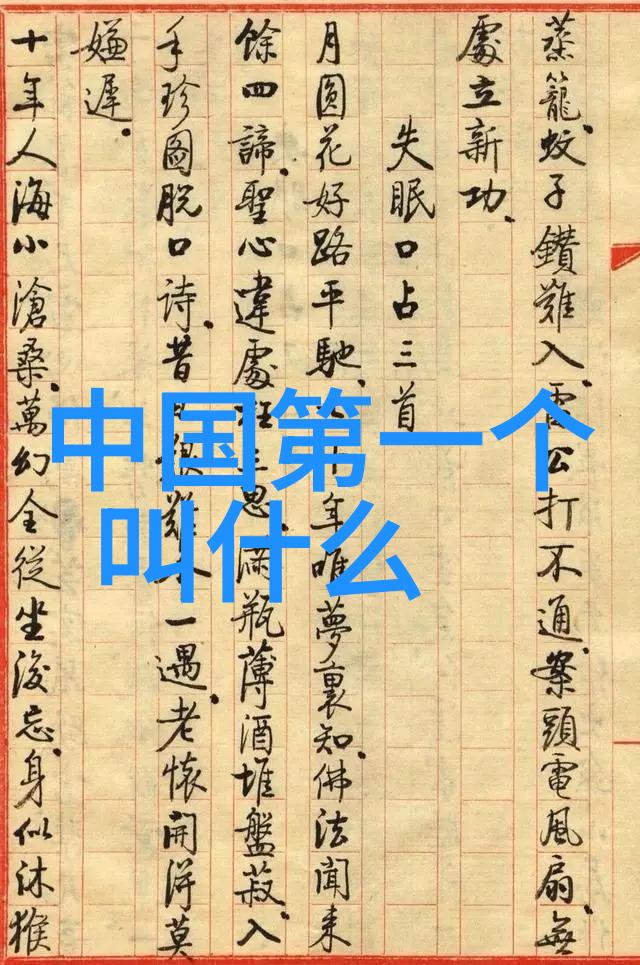 蒸籠.蚊子鑽難入.雷公打不通.案頭電風扇.無
處立新功.
失眠口占三首
月圓花好路平馳.七十年唯夢裏知.佛法聞來
餘四諦.聖心違處枉三思.滿瓶薄酒堆盤菽.入
手珍圖脫口詩.昔日艱難今一遇.老懷開得莫
嫌遲.
十年人海小滄桑.萬幻全從坐後忘.身似沐猴
中国第一个
叫什么